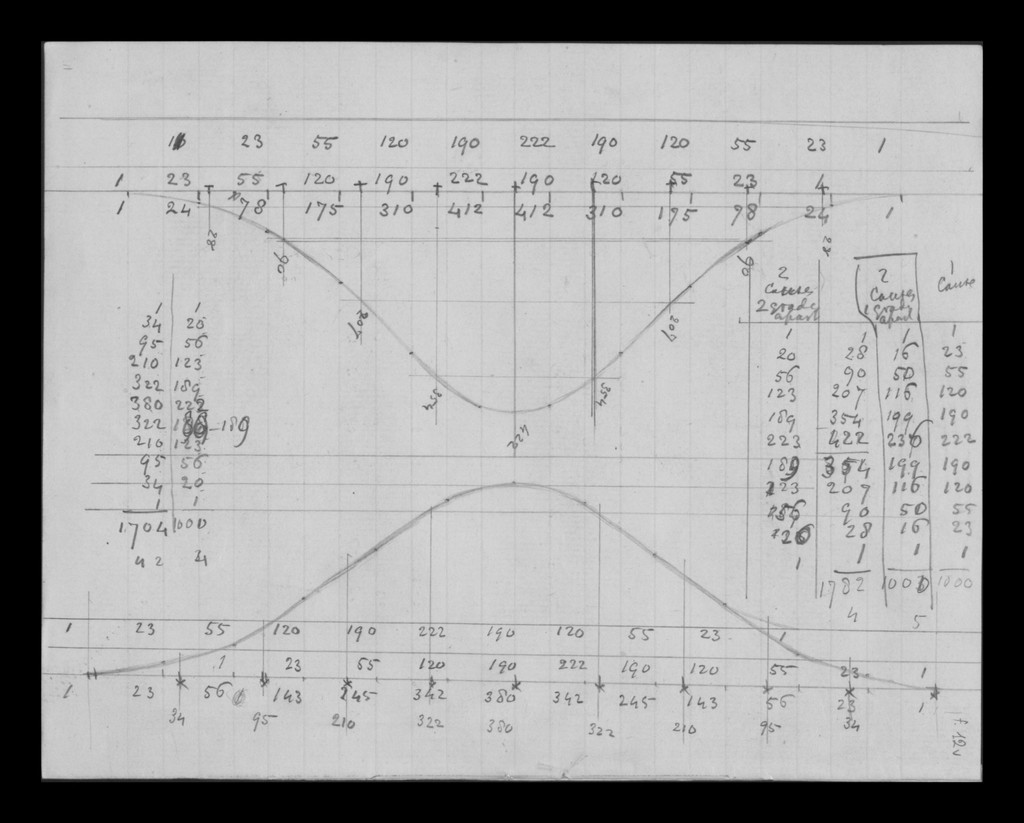 16 23 55 120 190 222 190 120 55 23 1
1 23 55 120 190 222 190 120 55 23 4
1 24 78 175 310 412 412 310 175 98 24 1
28 90 207 354 422 354 207 90 28
1 1
34 20
95 56
210 123
322 189
380 222
322 189 189
210 123
95 56
34 20
1 1
1704 1000
42 31
2 Causes 2 grades apart
2 Causes 1 grade apart
1 Cause
1 1 1
20 28 16 23
56 90 50 55
123 207 116 120
189 354 199 190
223 422 236 222
189 354 199 190
123 207 116 120
56 90 50 55
20 28 16 23
1 1 1 1
1782 1000 1000
4 5
1 23 55 120 190 222 190 120 55 23 1
1 23 55 120 190 222 190 120 55 23 1
1 23 56 143 245 342 380 342 245 143 56 23 1
34 95 210 322 380 322 210 95 34
f. 12v